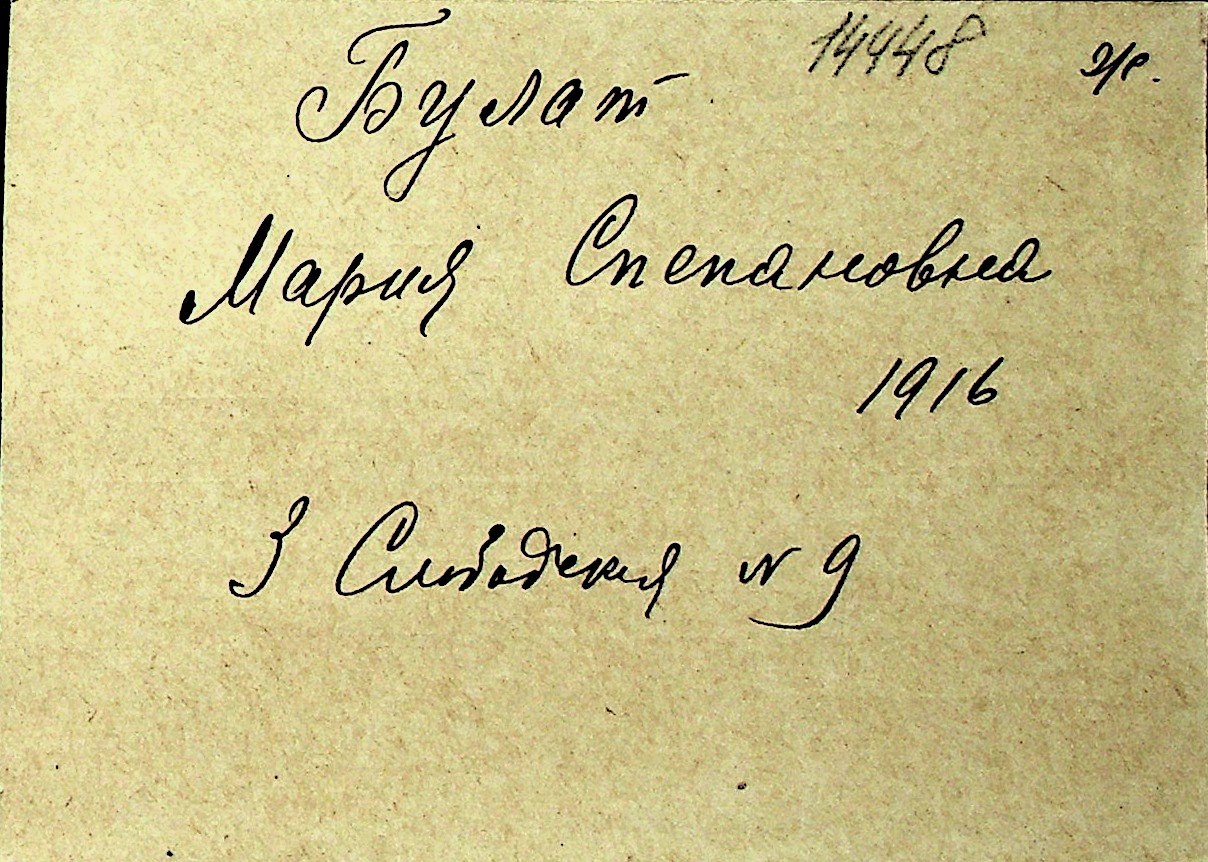 14448
Булат
Мария Степановна
1916
3 Слободская № 9